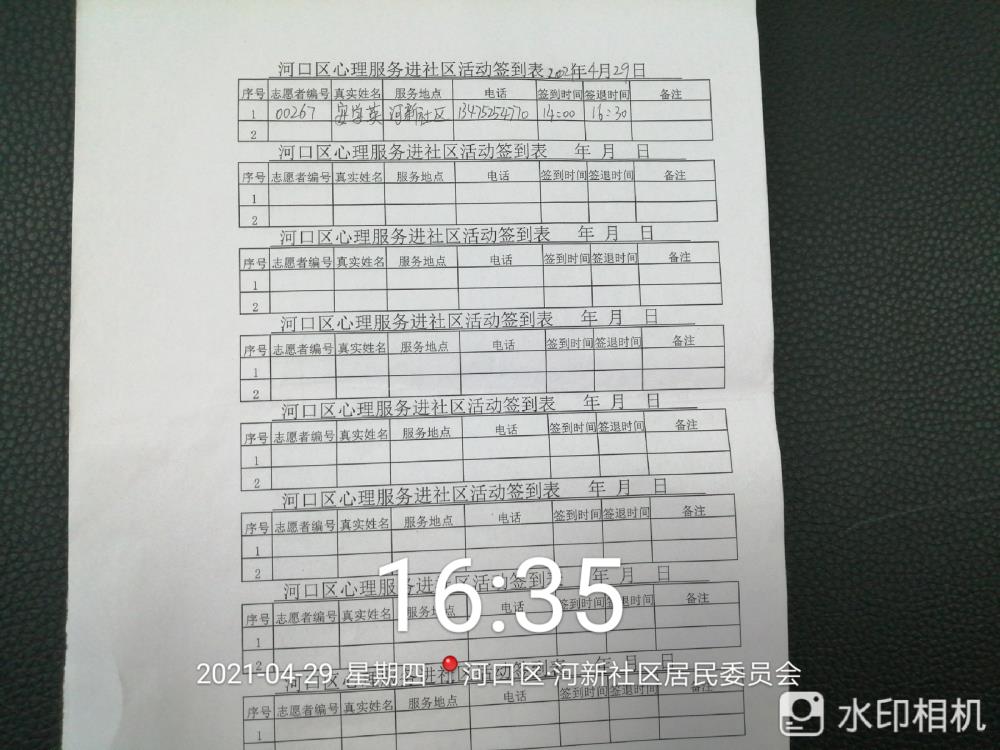 河口区心理服务进社区活动签到表 2021年4月29日
序号 志愿者编号 真实姓名 服务地点 电话 签到时间 签退时间 备注
1 00267 安学英 河新社区 13475254770 14:00 16:30
2
河口区心理服务进社区活动签到表 年 月 日
序号 志愿者编号 真实姓名 服务地点 电话 签到时间 签退时间 备注
1
2
河口区心理服务进社区活动签到表 年 月 日
序号 志愿者编号 真实姓名 服务地点 电话 签到时间 签退时间 备注
1
2
河口区心理服务进社区活动签到表 年 月 日
序号 志愿者编号 真实姓名 服务地点 电话 签到时间 签退时间 备注
1
2
河口区心理服务进社区活动签到表 年 月 日
序号 志愿者编号 真实姓名 服务地点 电话 签到时间 签退时间 备注
1
2
河口区心理服务进社区活动签到表 年 月 日
序号 志愿者编号 真实姓名 服务地点 电话 签到时间 签退时间 备注
1
2
河口区心理服务进社区活动签到表 年 月 日
序号 志愿者编号 真实姓名 服务地点 电话 签到时间 签退时间 备注
1
2
16:35
河口区心理服务进社区活动签到表 年 月 日
2021-04-29 星期四 河口区·河新社区居民委员会
序号 志愿者编号 真实姓名 服务地点 电话 签到时间 签退时间 备注
1
水印相机